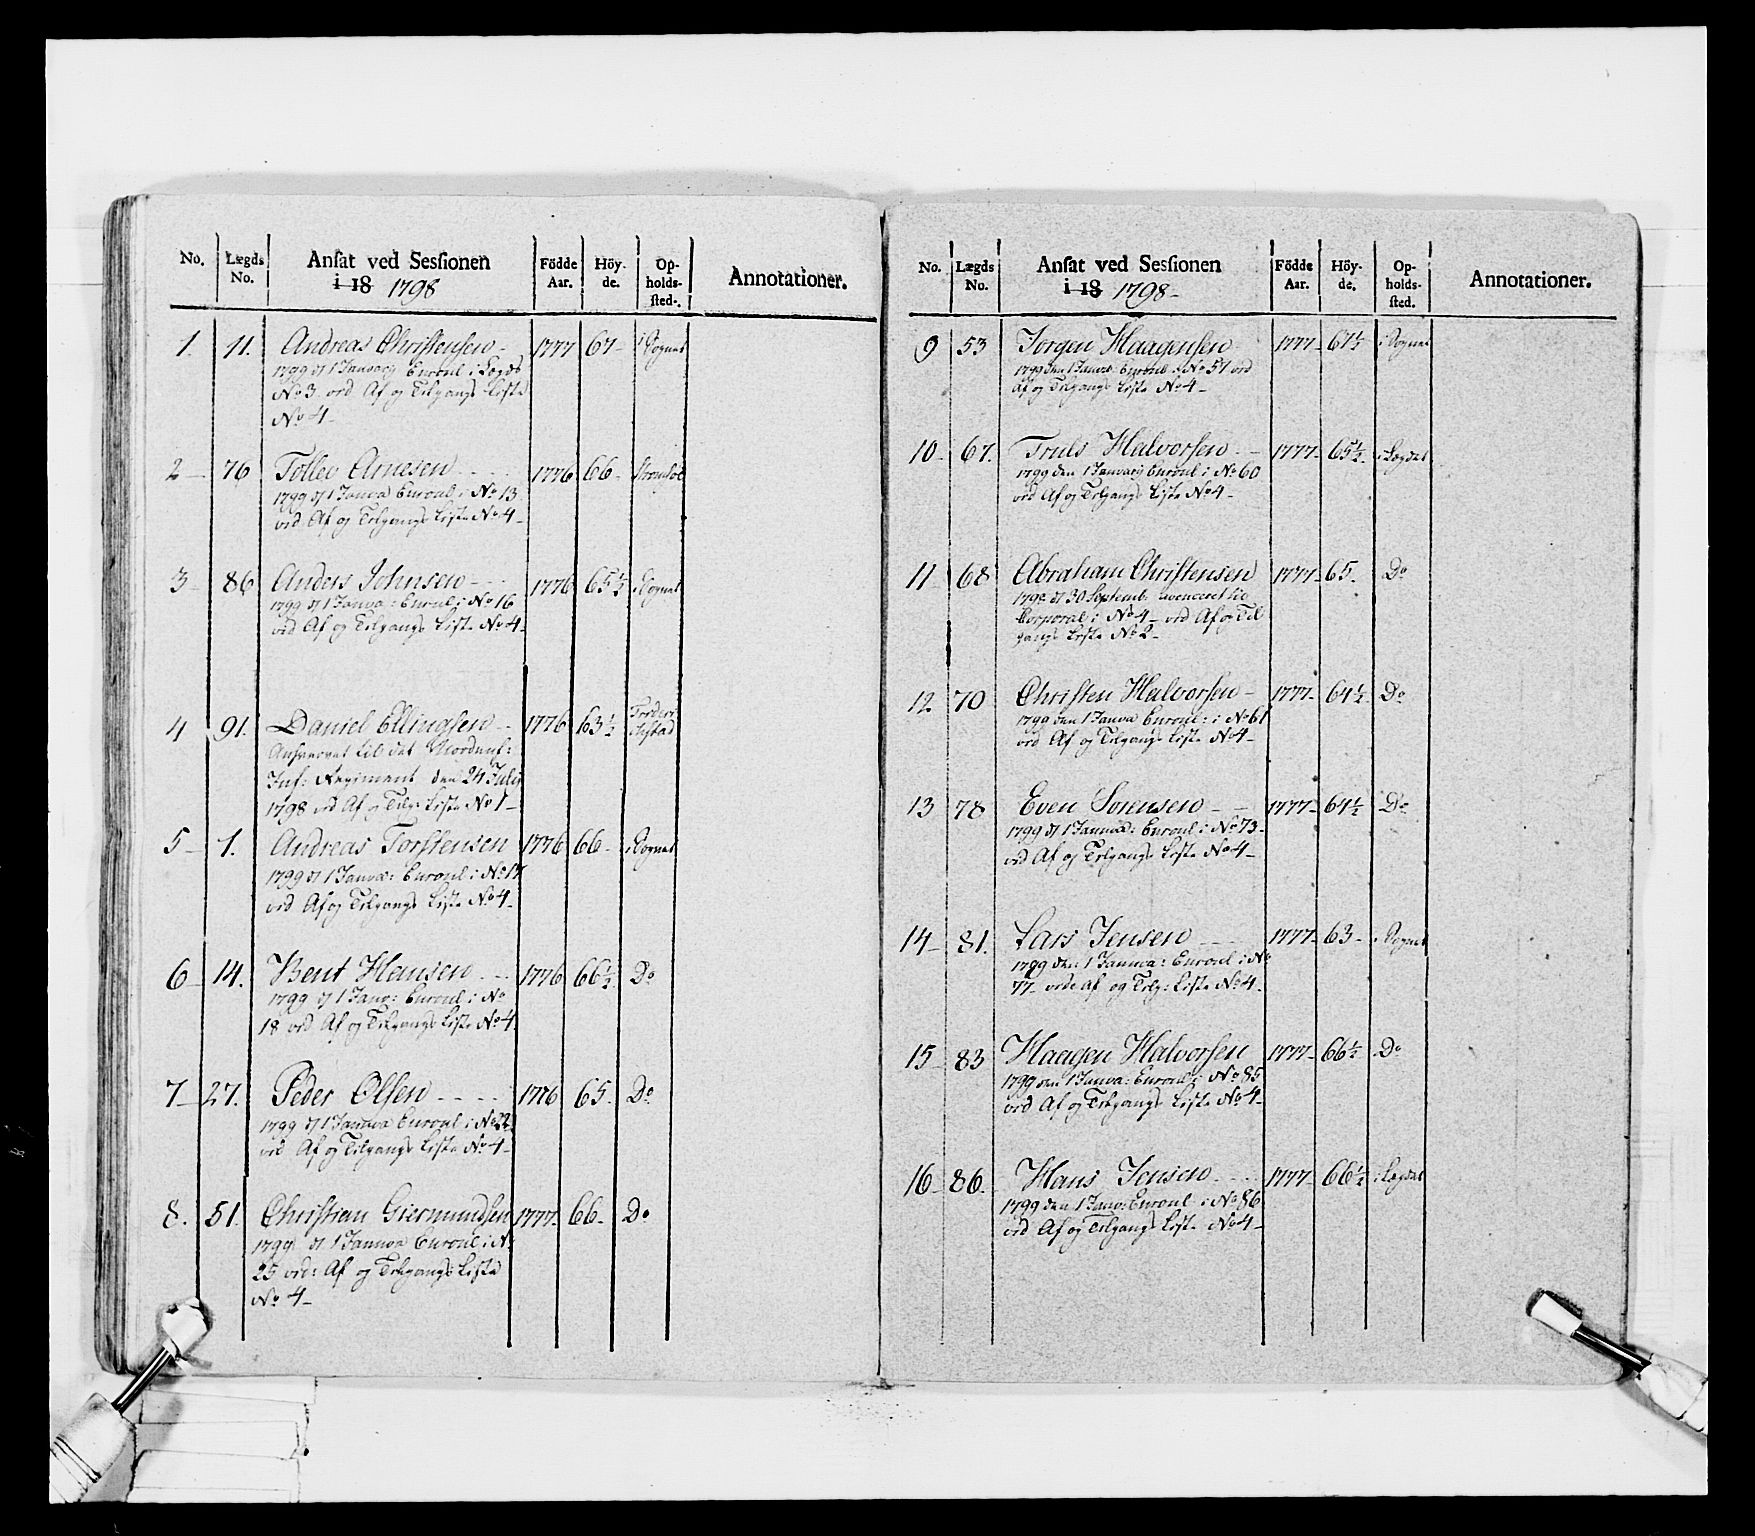 No. Lægds No. Ansat ved Sessionen i 18 1798 Födde Aar. Höyde. Opholdssted. Annotationer.
1. 11. Andreas Christensen 1777 67 i Sognet
1799 d 1 Januarij Enroul i Lægds
No 3 ved Af og Tilgangs Liste
No 4
2 76 Tollev Arnesen 1776 66
1799 d 1 Janua Enroul i No 13
ved Af og Tilgangs Liste No 4
3 86 Anders Johnsen 1776 65½ i Sognet
1799 d 1 Janua: Enroul i No 16
ved Af og Tilgangs Liste No 4
4 91. Daniel Ellingsen 1776 63½
til det Nordenf:
Inf: Regiment den 24 Julij
1798 ved Af og Tilg: Liste No 1
5 1. Andreas Torstensen 1776 66 i Sognet
1799 d 1 Janua: Enroul i No 17
ved Af og Tilgangs Liste No 4
6 14. Bent Hansen 1776 66½ Do
1799 d 1 Janv: Enroul i No
18 ved Af og Tilgangs Liste No 4
7 27. Peder Olsen 1776 65 Do
1799 d 1 Janua Enroul i No 22
ved Af og Tilgangs Liste No 4
8. 51. Christian Giermundsen 1777 66 Do
1799 d 1 Janua Enroul i No
25 ved: Af og Tilgangs Liste
No 4
No. Lægds No. Ansat ved Sessionen i 18 1798 Födde Aar. Höyde. Opholdssted. Annotationer.
9 53 Jørgen Haagensen 1777 67½ i Sognet
1799 den 1 Janua: Enroul i No 51 ved
Af og Tilgangs Liste No 4
10 67. Truls Halvorsen 1777 65½ i Lægdet
1799 den 1 Januarij Enroul i No 60
ved Af og Tilgangs Liste No 4
11 68 Abraham Christensen 1777 65 Do
1798 d 30 Septemb: avenceret til
Corporal i No 4 ved Af og Til
gangs Liste No 2
12 70 Christen Halvorsen 1777 64½ Do
1799 den 1 Janua Enroul: i No 61
ved Af og Tilgangs Liste No 4
13 78 Even Sørensen 1777 64½ Do
1799 d 1 Janua: Enroul: i No 73
ved Af og Tilgangs Liste No 4
14 81. Lars Jensen 1777 63 i Sognet
1799 den 1 Janua: Enroul i No
77 ved Af og Tilg: Liste No 4
15 83 Haagen Halvorsen 1777 66½ Do
1799 den 1 Janua: Enroul i No 85
ved Af og Tilgangs Liste No 4
16 86. Hans Jensen 1777 66½ i Lægdet
1799 den 1 Janv: Enroul i No 86
ved Af og Tilgangs Liste No 4